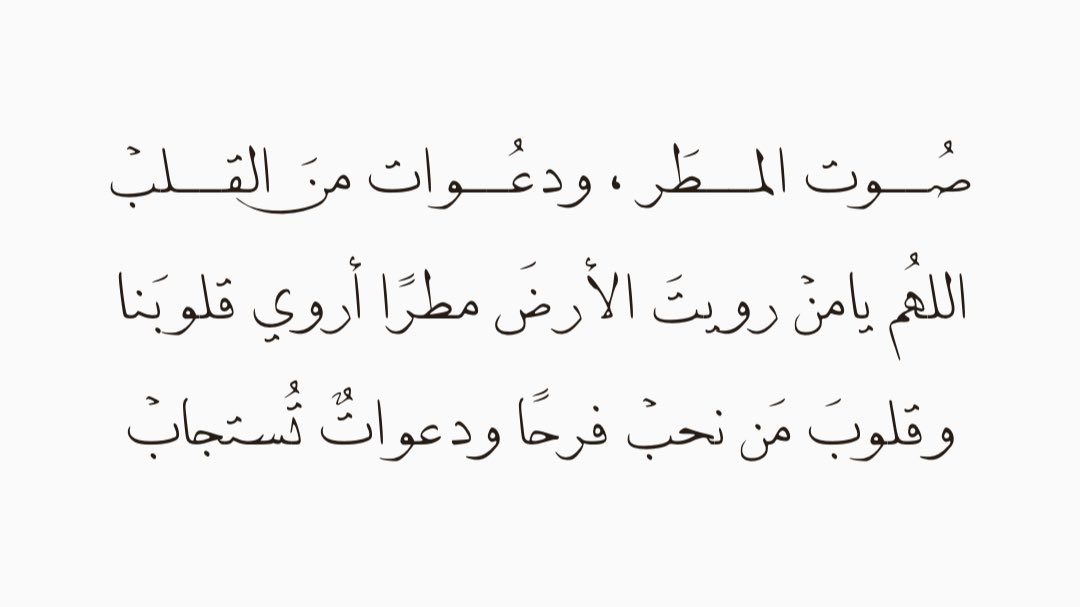 صُـوت المـطَر ، ودعُـوات منَ القـلبْ
اللهُم يامنْ رويتَ الأرضَ مطرًا أروي قلوبَنا
وقلوبَ مَن نحبْ فرحًا ودعواتٌ تُستجابْ